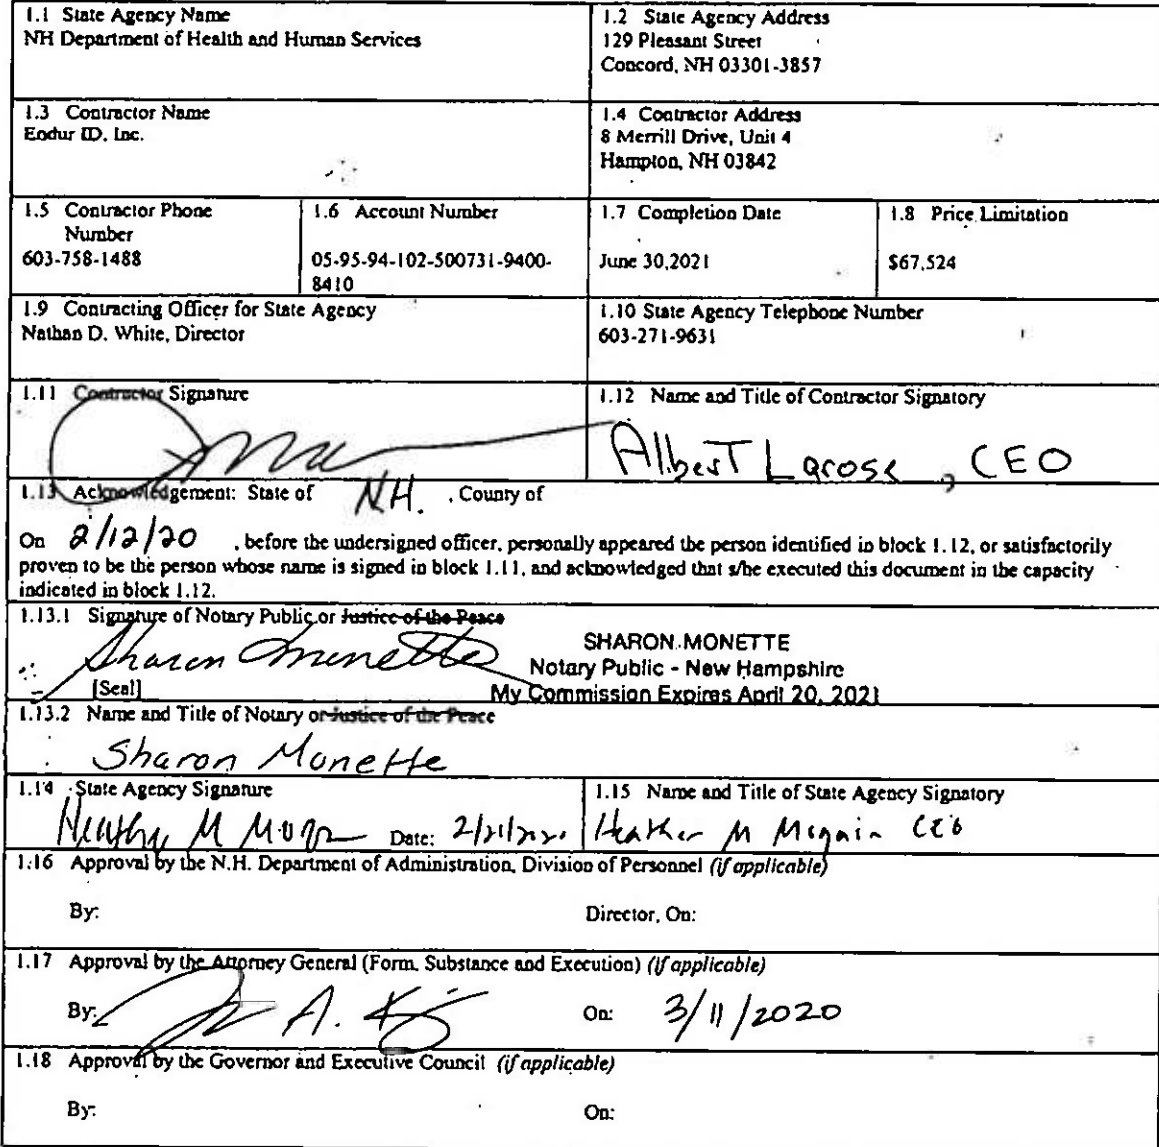 1.1 State Agency Name
NH Department of Health and Human Services
1.2 State Agency Address
129 Pleasant Street
Concord, NH 03301-3857
1.3 Contractor Name
Endur ID, Inc.
1.4 Contractor Address
8 Merrill Drive, Unit 4
Hampton, NH 03842
1.5 Contractor Phone
Number
603-758-1488
1.6 Account Number
05-95-94-102-500731-9400-
8410
1.7 Completion Date
June 30,2021
1.8 Price Limitation
$67,524
1.9 Contracting Officer for State Agency
Nathan D. White, Director
1.10 State Agency Telephone Number
603-271-9631
1.11 Contractor Signature
1.12 Name and Title of Contractor Signatory
Albert Larose, CEO
1.13 Acknowledgement: State of NH. , County of
On 2/12/20 , before the undersigned officer, personally appeared the person identified in block 1.12, or satisfactorily
proven to be the person whose name is signed in block 1.11, and acknowledged that s/he executed this document in the capacity
indicated in block 1.12.
1.13.1 Signature of Notary Public or Justice of the Peace
Sharon Monette
SHARON MONETTE
Notary Public - New Hampshire
My Commission Expires April 20, 2021
[Seal]
1.13.2 Name and Title of Notary or Justice of the Peace
Sharon Monette
1.14 State Agency Signature
Heather M Date: 2/21/2020
1.15 Name and Title of State Agency Signatory
Heather M CEO
1.16 Approval by the N.H. Department of Administration, Division of Personnel (if applicable)
By: Director, On:
1.17 Approval by the Attorney General (Form, Substance and Execution) (if applicable)
By: On: 3/11/2020
1.18 Approval by the Governor and Executive Council (if applicable)
By: On: